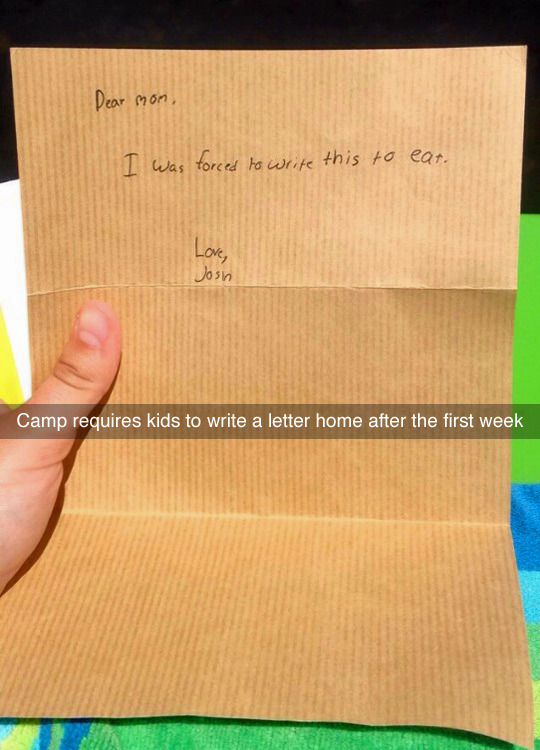 Dear mom,
I was forced to write this to eat.
Love,
Josh
Camp requires kids to write a letter home after the first week